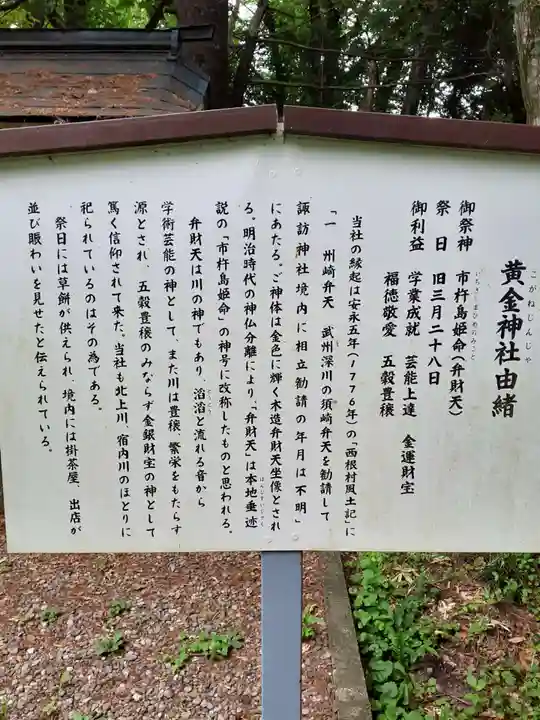 こがねじんじゃ
黄金神社由緒
いちきしまひめのみこと
御祭神 市杵島姫命(弁財天)
祭日 旧三月二十八日
御利益 学業成就 芸能上達 金運財宝
福徳敬愛 五穀豊穣
当社の縁起は安永五年(1776年)の「西根村風土記」に
「一 州崎弁天 武州深川の須崎弁天を勧請して
諏訪神社境内に相立勧請の年月は不明」
にあたる。ご神体は金色に輝く木造弁財天坐像とされ
る。明治時代の神仏分離により、「弁財天」は本地垂迹
ほんじすいじゃく
説の「市杵島姫命」の神号に改称したものと思われる。
弁財天は川の神でもあり、滔滔と流れる音から
学術芸能の神として、また川は豊穣、繁栄をもたらす
源とされ、五穀豊穣のみならず金銀財宝の神として
篤く信仰されて来た。当社も北上川、宿内川のほとりに
祀られているのはその為である。
祭日には草餅が供えられ、境内には掛茶屋、出店が
並び賑わいを見せたと伝えられている。